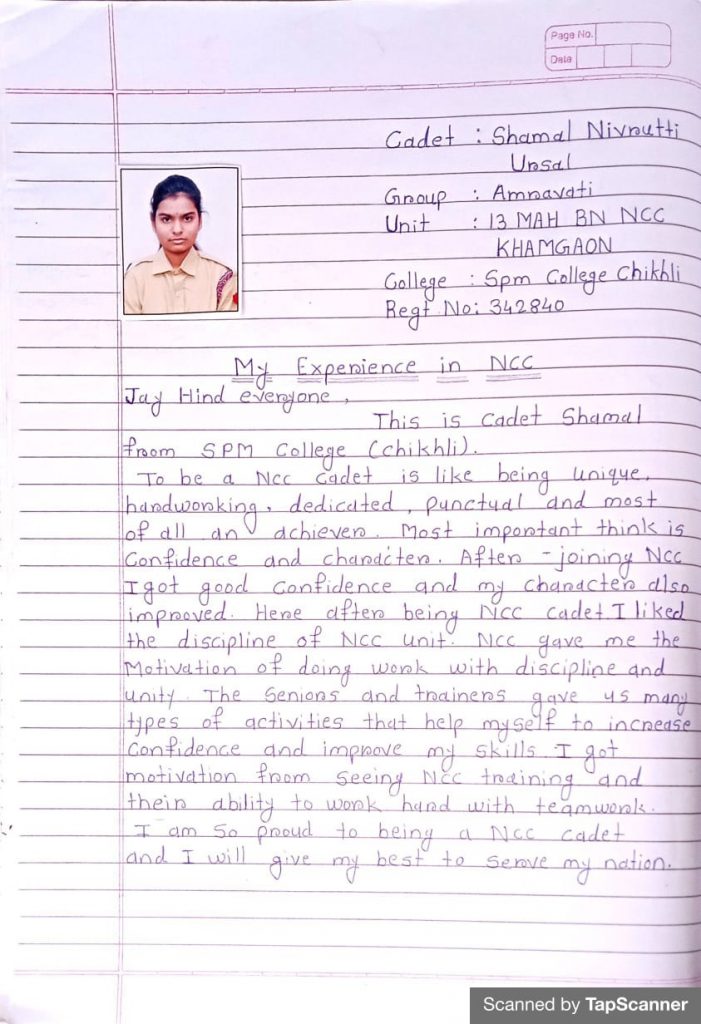 Page No.
Date
Cadet : Shamal Nivrutti
Ursal
Group : Amravati
Unit : 13 MAH BN NCC
KHAMGAON
College : Spm College Chikhli
Regt No: 342840
My Experience in NCC
Jay Hind everyone ,
This is Cadet Shamal
from SPM College (chikhli).
To be a Ncc Cadet is like being unique,
hardworking, dedicated, punctual and most
of all an achiever. Most important think is
Confidence and character. After - joining NCC
I got good Confidence and my character also
improved. Here after being NCC cadet I liked
the discipline of NCC unit. NCC gave me the
Motivation of doing work with discipline and
unity. The Seniors and trainers gave us many
types of activities that help myself to increase
Confidence and improve my skills. I got
motivation from seeing NCC training and
their ability to work hard with teamwork.
I am So proud to being a NCC cadet
and I will give my best to serve my nation.
Scanned by TapScanner